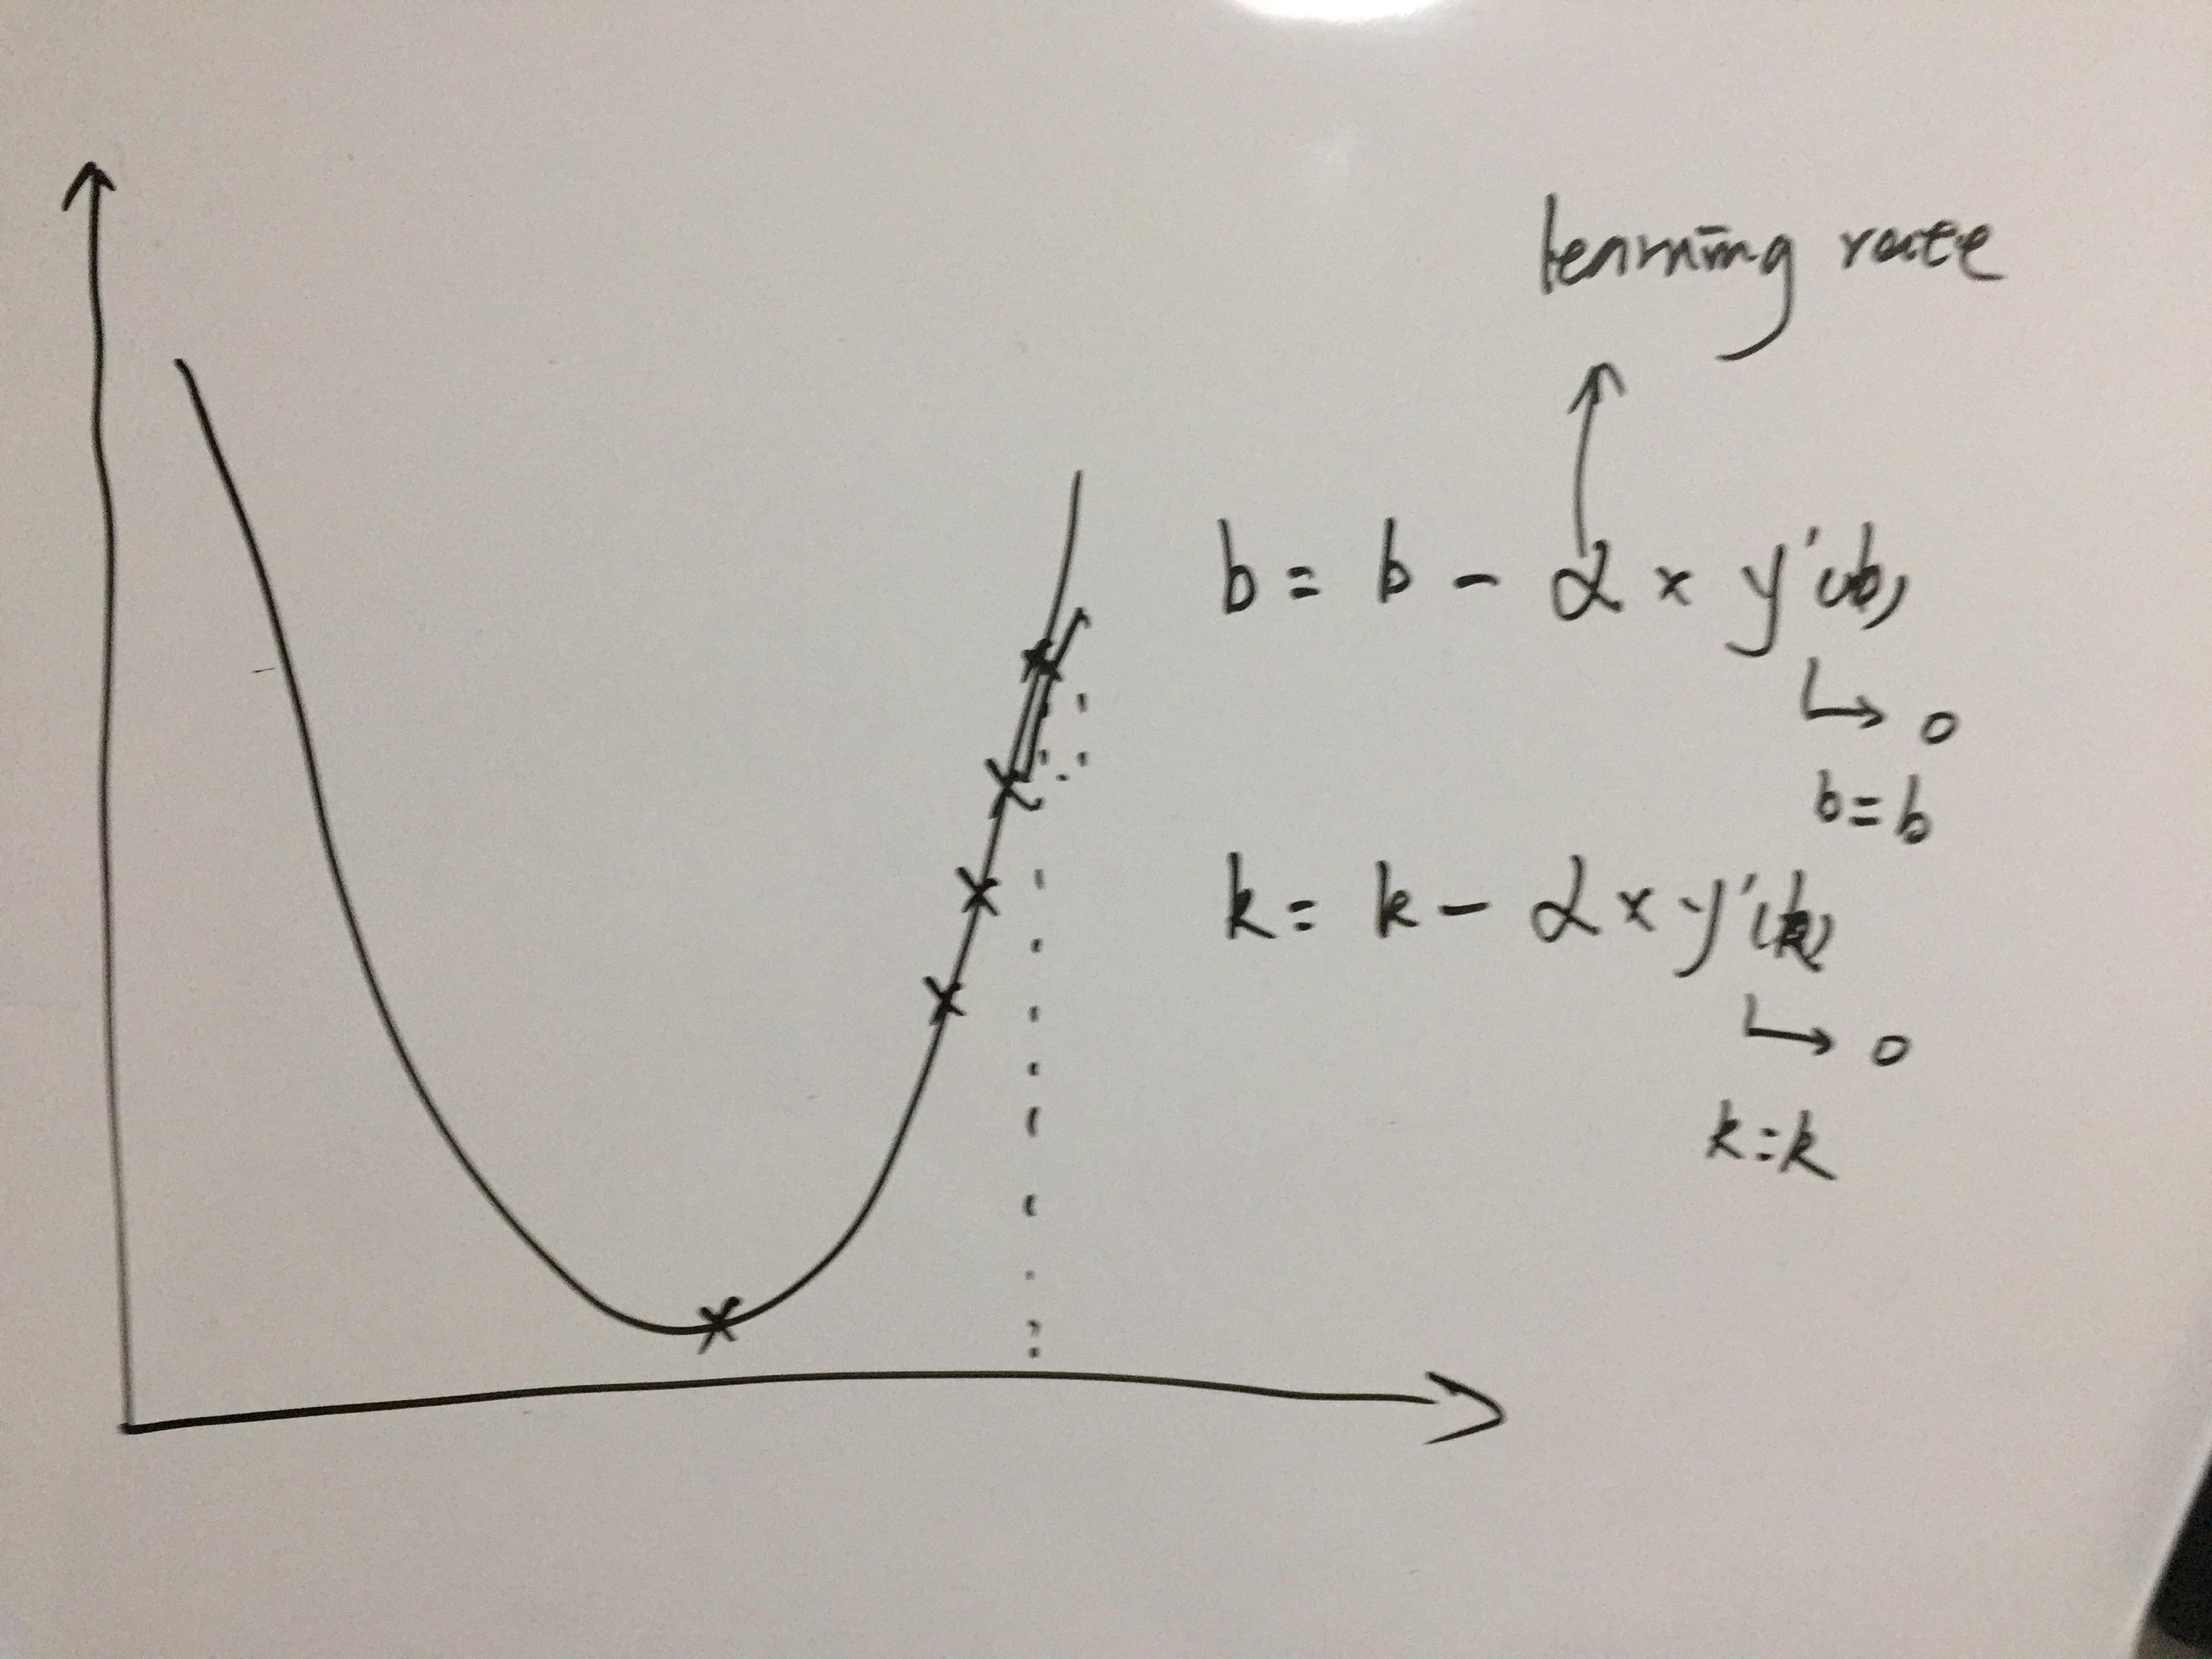 learning rate
b = b - α × y'(b)
↳ 0
b = b
k = k - α × y'(k)
↳ 0
k = k